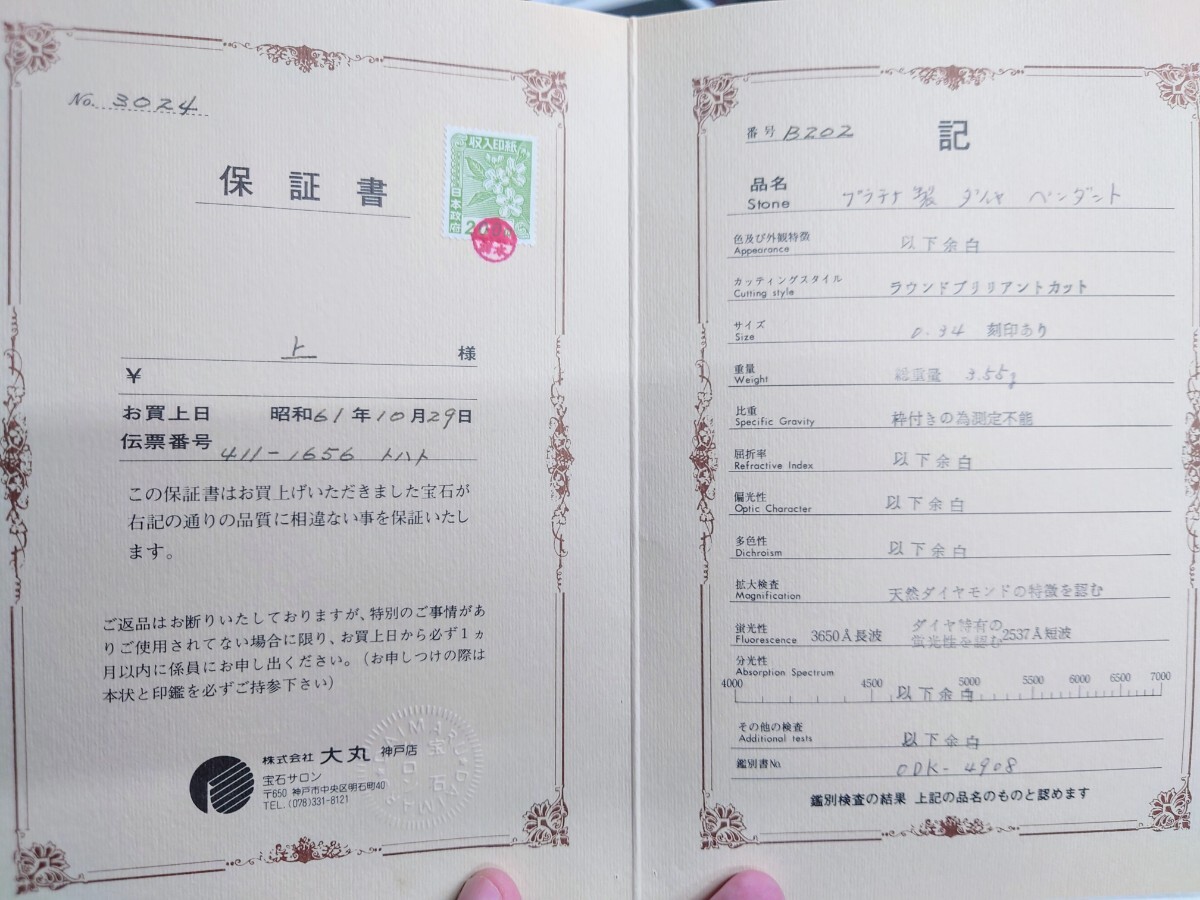 No. 3024
保証書
収入印紙
日本政府
上 様
¥
お買上日 昭和61年10月29日
伝票番号 411-1656 トハト
この保証書はお買上げいただきました宝石が
右記の通りの品質に相違ない事を保証いたし
ます。
ご返品はお断りいたしておりますが、特別のご事情があ
りご使用されてない場合に限り、お買上日から必ず1ヵ
月以内に係員にお申し出ください。(お申しつけの際は
本状と印鑑を必ずご持参下さい)
株式会社 大丸 神戸店
宝石サロン
〒650 神戸市中央区明石町40
TEL. (078)331-8121
番号 B202
記
品名 プラチナ製 ダイヤ ペンダント
Stone
色及び外観特徴 以下余白
Appearance
カッティングスタイル ラウンドブリリアントカット
Cutting style
サイズ 0.34 刻印あり
Size
重量 総重量 3.55g
Weight
比重 枠付きの為測定不能
Specific Gravity
屈折率 以下余白
Refractive Index
偏光性 以下余白
Optic Character
多色性 以下余白
Dichroism
拡大検査 天然ダイヤモンドの特徴を認む
Magnification
蛍光性 3650Å長波 ダイヤ特有の 2537Å短波
Fluorescence 蛍光性を認む
分光性
Absorption Spectrum
4000 4500 5000 5500 6000 6500 7000
以下余白
その他の検査 以下余白
Additional tests
鑑別書No. ODK-4908
鑑別検査の結果 上記の品名のものと認めます